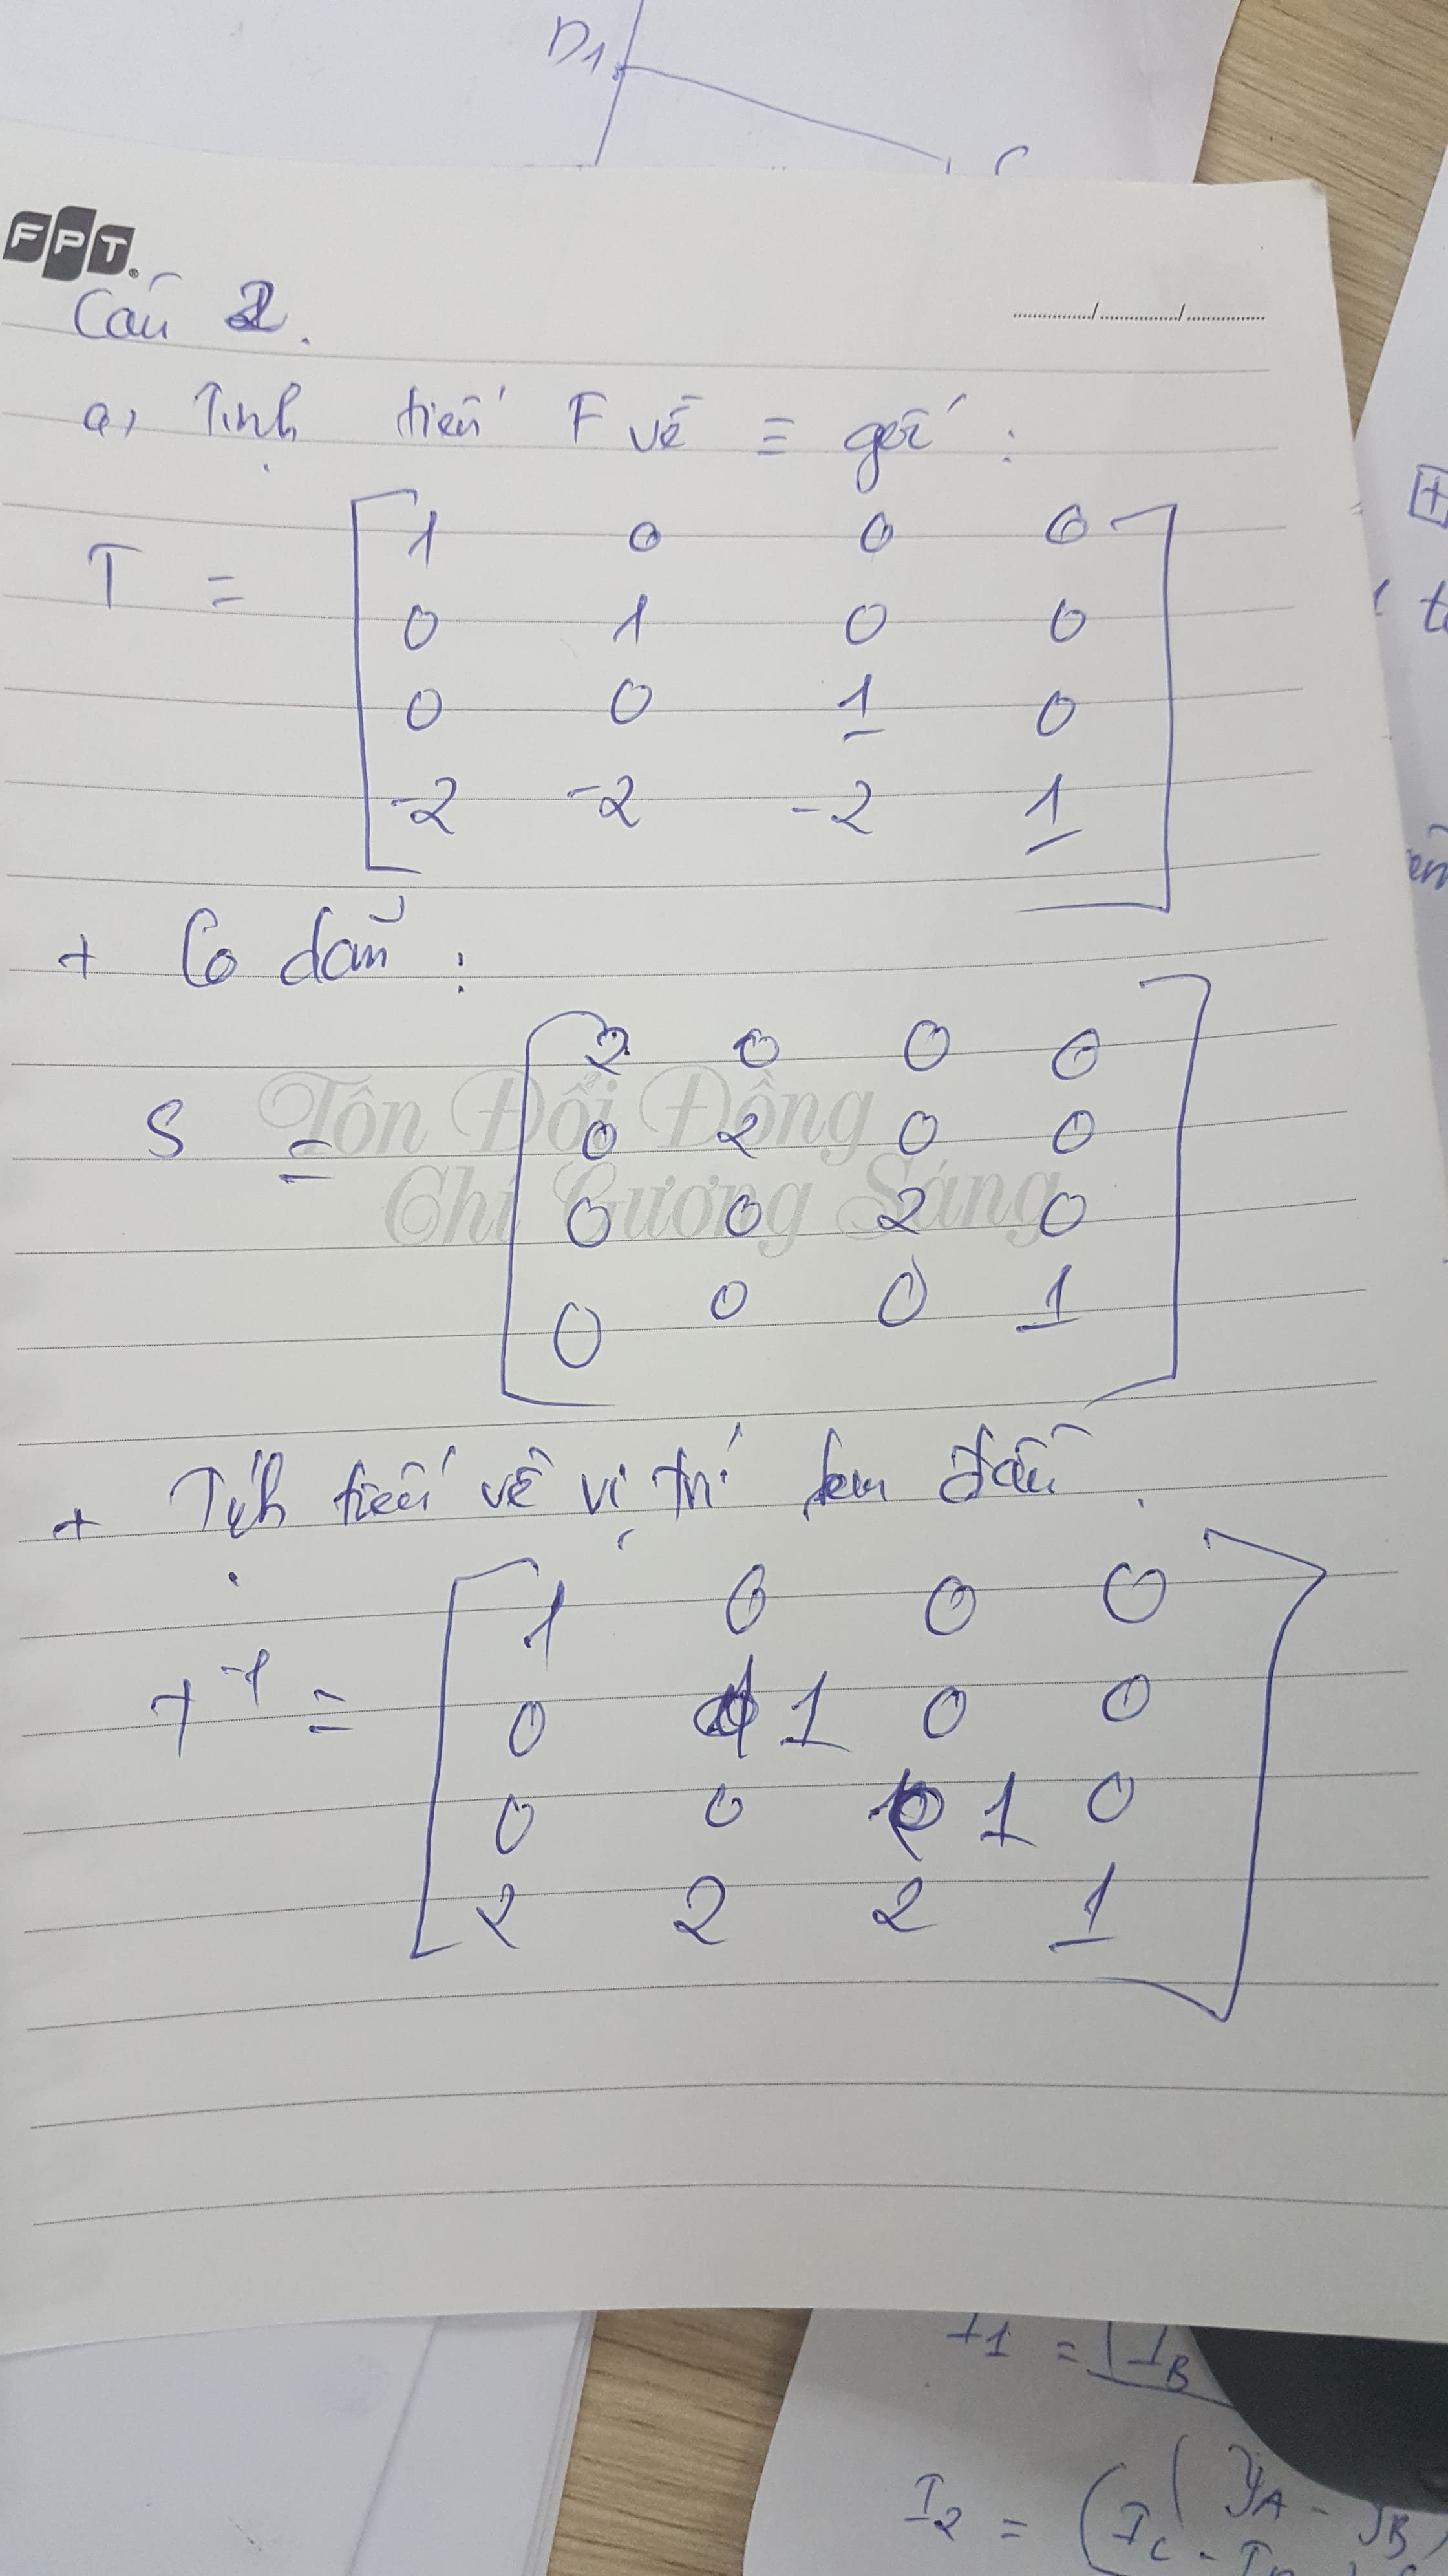 D1
C
FPT
Câu 2.
............../............../..............
a, Tịnh tiến F về ≡ gốc :
T = [ 1 0 0 0
0 1 0 0
0 0 1 0
-2 -2 -2 1 ]
+ Co dãn :
S = [ 2 0 0 0
0 2 0 0
0 0 2 0
0 0 0 1 ]
Tôn Đổi Đồng
Chí Gương Sáng
+ Tịnh tiến về vị trí ban đầu.
T⁻¹ = [ 1 0 0 0
0 1 0 0
0 0 1 0
2 2 2 1 ]
I1 = | IB
I2 = ( IC ( yA - yB